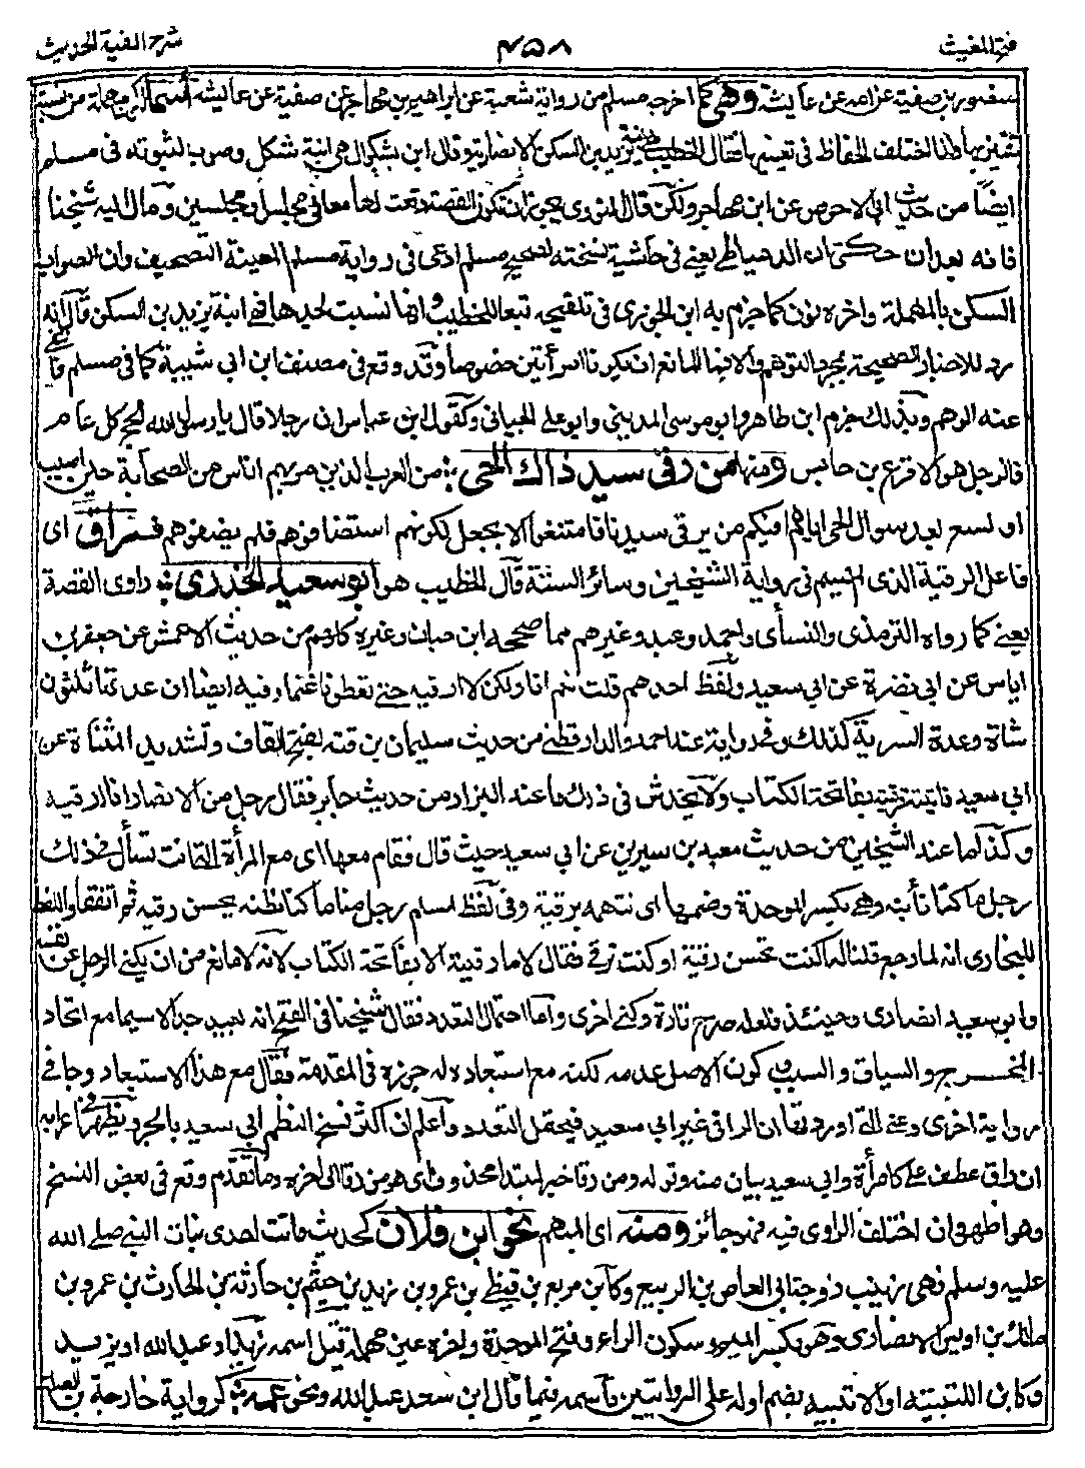 فتح المغيث ٤٥٨ شرح الفية الحديث
منصور بن صفية عن امه عن عايشة وهي كما اخرجه مسلم من رواية شعبة عن ابراهيم بن مهاجر عن صفية عن عايشة اسماء
اختلف الحفاظ في تعيينها فقال الخطيب هي بنت يزيد بن السكن الانصارية وقال ابن بشكوال هي ابنة شكل وصوب لثبوته في مسلم
ايضا من حديث ابي الاحوص عن ابن مهاجر ولكن قال النووي يجوز ان تكون القصة وقعت لهما معا في مجلس او مجلسين ومال اليه شيخنا
فانه بعد ان حكى ان الدمياطي يعني في حاشية نسخته لصحيح مسلم ادعى في رواية مسلم المعينة التصحيف وان الصواب
السكن بالمهملة واخره نون كما جزم به ابن الجوزي في تلقيحه تبعا للخطيب وانها نسبت لجدها فهي ابنة يزيد بن السكن قال انه
رد للاخبار الصحيحة بمجرد التوهم والا فما المانع ان يكونا امرأتين خصوصا وقد وقع في مصنف ابن ابي شيبة كما في مسلم فانتفى
عنه الوهم وبذلك جزم ابن طاهر وابو موسى المديني وابو علي الجياني وكقول ابن عباس ان رجلا قال يا رسول الله الحج كل عام
فالرجل هو الاقرع بن حابس ومنها من رقى سيد ذاك الحي من العرب الذين مر بهم اناس من الصحابة حين اصيب
او لسع بعد سوال الحي اياهم افيكم من يرقي سيدنا فامتنعوا الا بجعل لكونهم استضافوهم فلم يضيفوهم فراق اى
فاعل الرقية الذى ابهم في رواية الشيخين وسائر الستة قال الخطيب هو ابو سعيد الخدري راوى القصة
يعني كما رواه الترمذى والنسأى واحمد وعبد وغيرهم مما صححه ابن حبان وغيره كلهم من حديث الاعمش عن جعفر بن
اياس عن ابي نضرة عن ابي سعيد ولفظ احدهم قلت نعم انا ولكن لا ارقيه حتى تعطونا غنما وفيه ايضا ان عدتها ثلثون
شاة وعدة السرية كذلك وفي رواية عند احمد والدارقطني من حديث سليمان بن قتة بفتح القاف وتشديد المثناة عن
ابي سعيد فاتيته فرقيته بفاتحة الكتاب ولا يخدش في ذلك ما عند البزار من حديث جابر فقال رجل من الانصار انا ارقيه
وكذا ما عند الشيخين من حديث معبد بن سيرين عن ابي سعيد حيث قال فقام معها اى مع المرأة التى اتت تسأل في ذلك
رجل ما كنا نأبنه وهي بكسر الموحدة وضمها اى نتهمه برقية وفي لفظ لمسلم رجل منا ما كنا نظنه يحسن رقيه ثم اتفقا واللفظ
للبخارى انه لما رجع قلنا له اكنت تحسن رقية او كنت ترقي فقال لا ما رقيته الا بفاتحة الكتاب لانه لا مانع من ان يكني الرجل عن نفسه
وابو سعيد انصارى وحينئذ فلعله صرح تارة وكنى اخرى واما احتمال التعدد فقال شيخنا في الفتح انه بعيد جدا لاسيما مع اتحاد
المخرج والسياق والسبب كون الاصل عدمه لكنه مع استبعاده له جوزه في المقدمة فقال مع هذا الاستبعاد وجا في
رواية اخرى وعنى التي اوردتها ان الراقي غير ابي سعيد فيحتمل التعدد واعلم ان اكثر نسخ النظم ابي سعيد بالجر ويظهر في اعرابه
ان راق عطف على كامرأة وابي سعيد بيان منه وقوله ومن رقا خبر لمبتدأ محذوف اى هو من رقا الى اخره وما تقدم وقع في بعض النسخ
وهو اظهر وان اختلف الراوى فيه فهو جائز ومنه اى المبهم نحو ابن فلان كحديث ماتت احدى بنات النبي صلى الله
عليه وسلم فهى زينب زوجة ابي العاص بن الربيع وكابن مربع بن قيظي بن عمرو بن زيد بن جشم بن حارثة بن الحارث بن عمرو بن
مالك بن اوس الانصارى وهو بكسر الميم وسكون الراء وفتح الموحدة واخره عين مهملة قيل اسمه زيد او عبد الله او يزيد
وكابن اللتبية او الاتبية بضم اوله على الروايتين فاسمه فيما قال ابن سعد عبد الله ونحو عمه كرواية خارجة بن الصلت